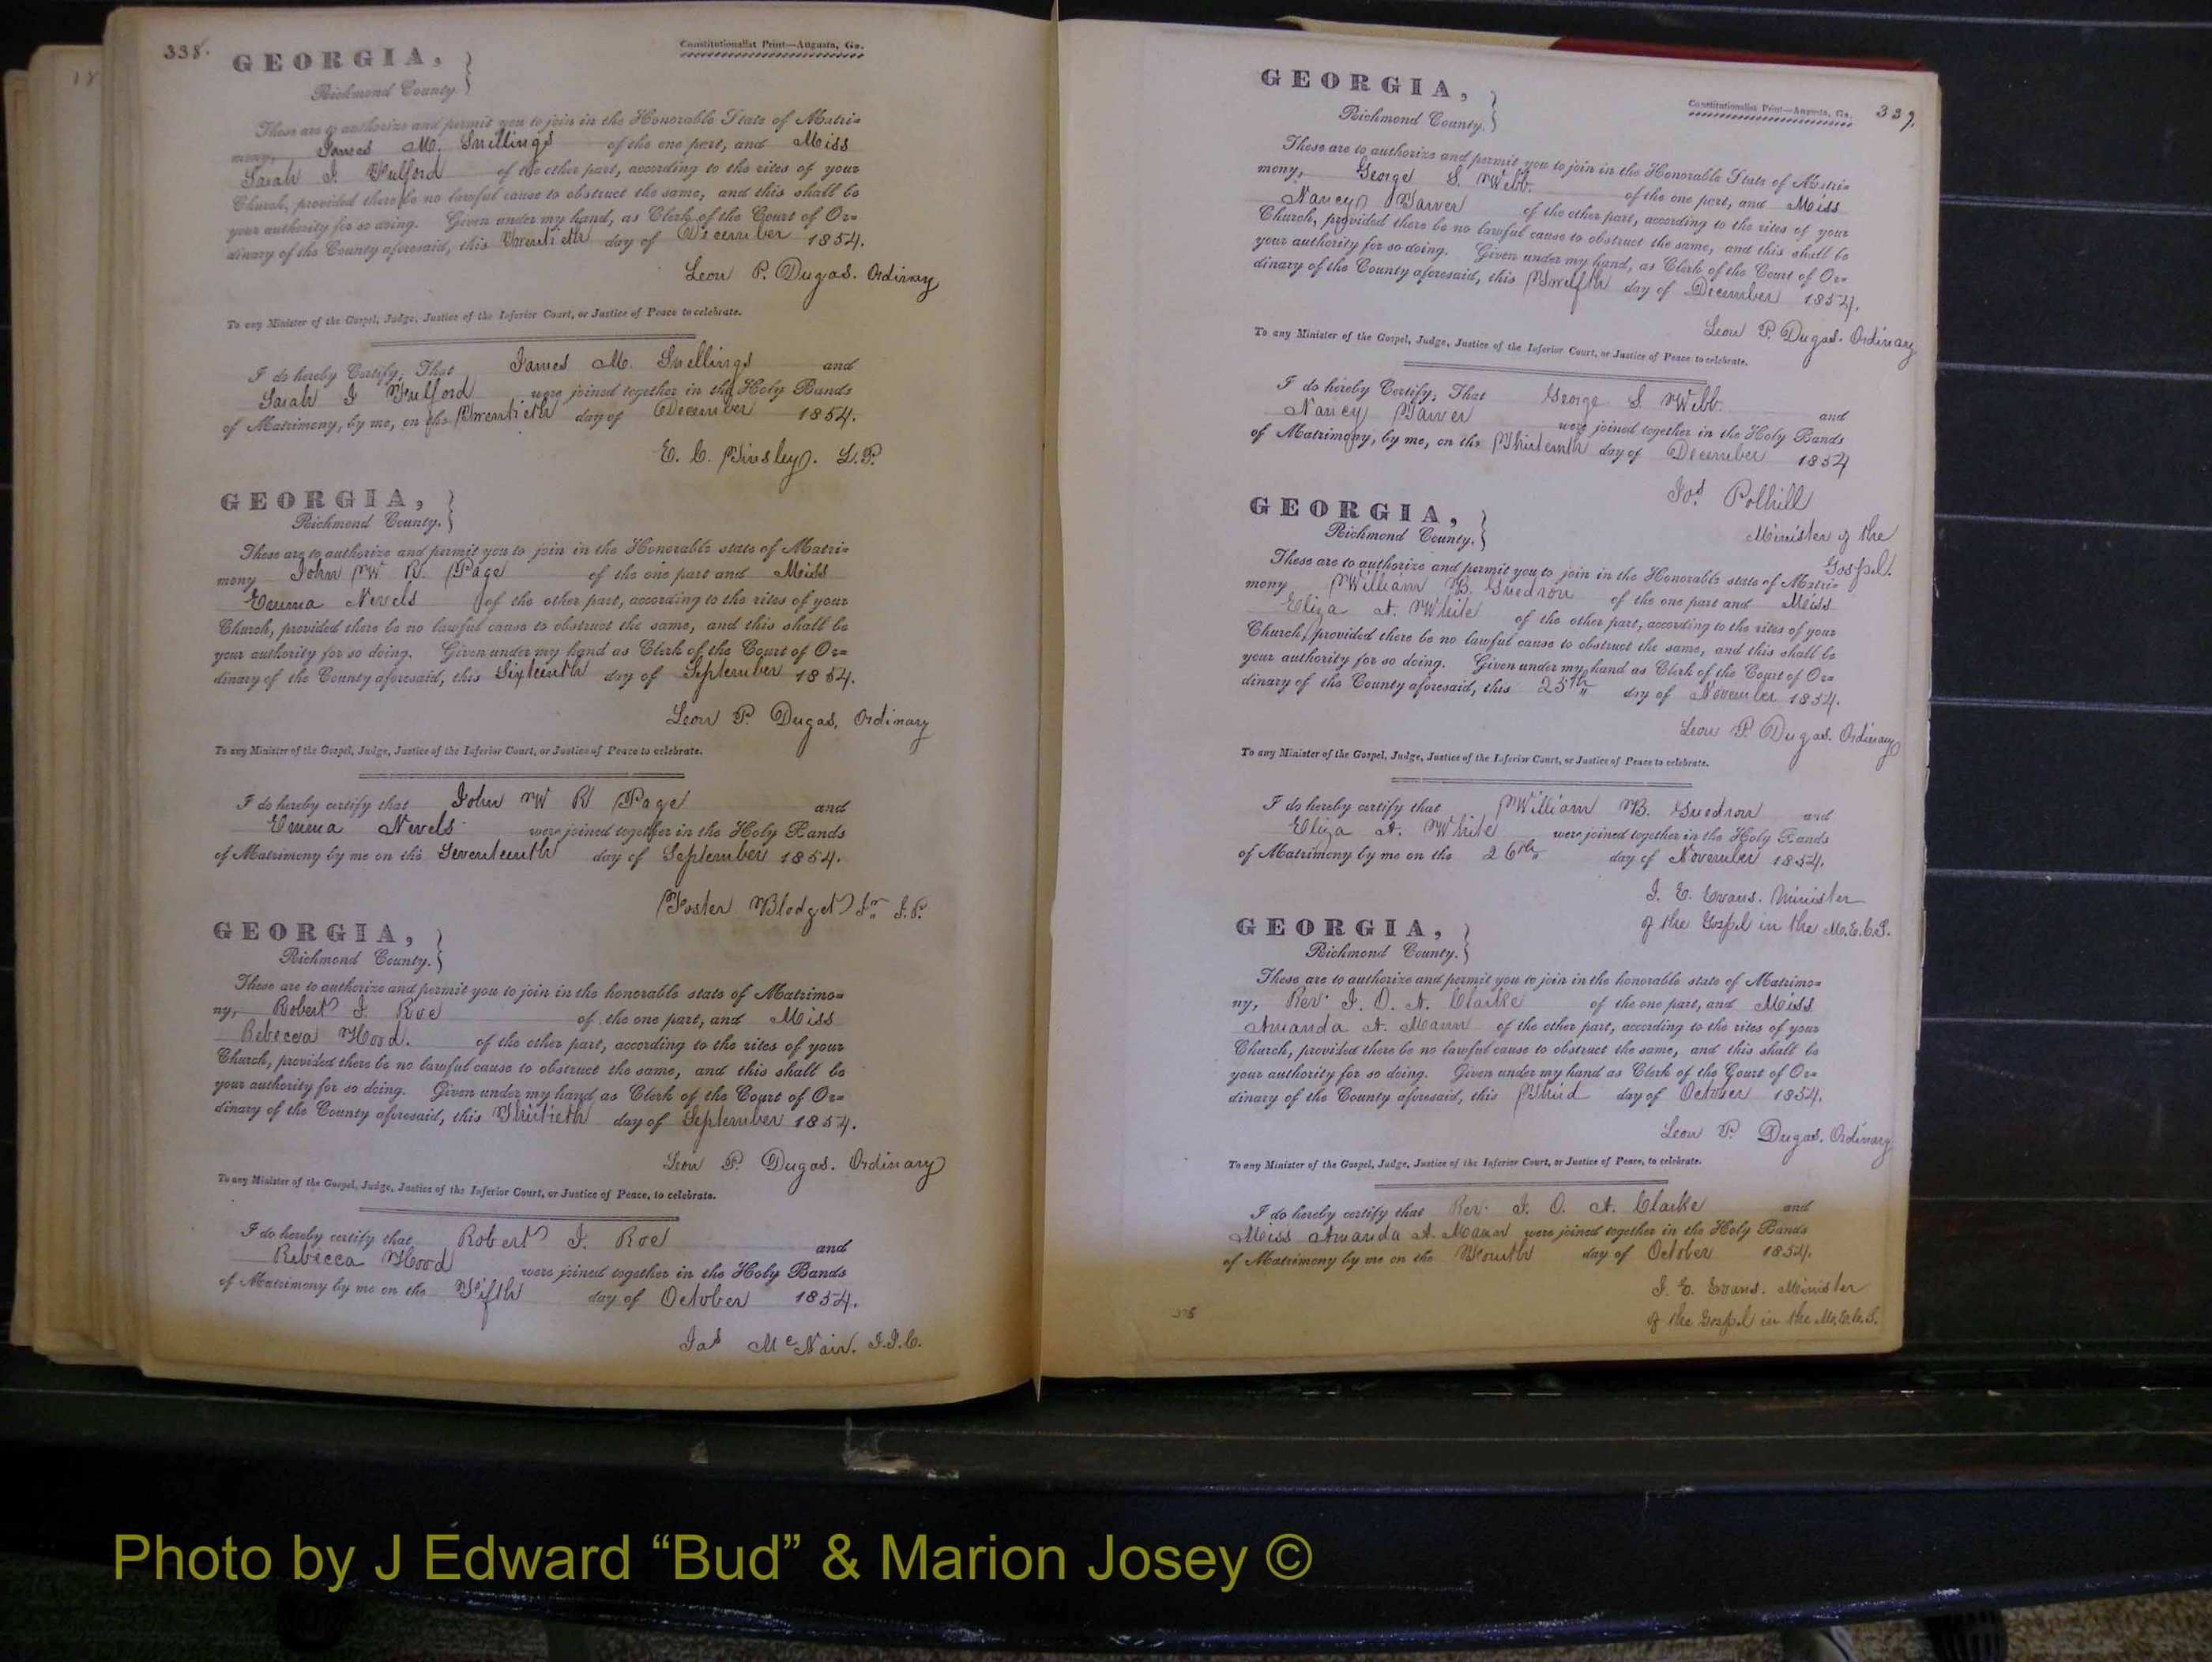 338.
Constitutionalist Print—Augusta, Ga.
GEORGIA,
Richmond County.
These are to authorize and permit you to join in the Honorable State of Matri=
mony, James M. Snellings of the one part, and Miss
Sarah J. Fulford of the other part, according to the rites of your
Church, provided there be no lawful cause to obstruct the same, and this shall be
your authority for so doing. Given under my hand, as Clerk of the Court of Or=
dinary of the County aforesaid, this Twentieth day of December 1854.
Leon P. Dugas. Ordinary
To any Minister of the Gospel, Judge, Justice of the Inferior Court, or Justice of Peace to celebrate.
I do hereby Certify, That James M. Snellings and
Sarah J Fulford were joined together in the Holy Bands
of Matrimony, by me, on the Twentieth day of December 1854.
E. C. Tinsley. L.P.
GEORGIA,
Richmond County.
These are to authorize and permit you to join in the Honorable state of Matri=
mony John W R. Page of the one part and Miss
Emma Nevels of the other part, according to the rites of your
Church, provided there be no lawful cause to obstruct the same, and this shall be
your authority for so doing. Given under my hand as Clerk of the Court of Or=
dinary of the County aforesaid, this Sixteenth day of September 1854.
Leon P. Dugas, Ordinary
To any Minister of the Gospel, Judge, Justice of the Inferior Court, or Justice of Peace to celebrate.
I do hereby certify that John W R Page and
Emma Nevels were joined together in the Holy Bands
of Matrimony by me on the Seventeenth day of September 1854.
Foster Blodget Jr. J.P.
GEORGIA,
Richmond County.
These are to authorize and permit you to join in the honorable state of Matrimo=
ny, Robert J. Roe of the one part, and Miss
Rebecca Hood. of the other part, according to the rites of your
Church, provided there be no lawful cause to obstruct the same, and this shall be
your authority for so doing. Given under my hand as Clerk of the Court of Or=
dinary of the County aforesaid, this Thirtieth day of September 1854.
Leon P. Dugas. Ordinary
To any Minister of the Gospel, Judge, Justice of the Inferior Court, or Justice of Peace, to celebrate.
I do hereby certify that Robert J. Roe and
Rebecca Hood were joined together in the Holy Bands
of Matrimony by me on the Fifth day of October 1854.
Jas McNair. J.I.C.
339.
Constitutionalist Print—Augusta, Ga.
GEORGIA,
Richmond County.
These are to authorize and permit you to join in the Honorable State of Matri=
mony, George S. Webb. of the one part, and Miss
Nancy Tarver of the other part, according to the rites of your
Church, provided there be no lawful cause to obstruct the same, and this shall be
your authority for so doing. Given under my hand, as Clerk of the Court of Or=
dinary of the County aforesaid, this Twelfth day of December 1854.
Leon P. Dugas. Ordinary
To any Minister of the Gospel, Judge, Justice of the Inferior Court, or Justice of Peace to celebrate.
I do hereby Certify, That George S. Webb. and
Nancy Tarver were joined together in the Holy Bands
of Matrimony, by me, on the Thirteenth day of December 1854
Jos. Polhill
Minister of the
Gospel.
GEORGIA,
Richmond County.
These are to authorize and permit you to join in the Honorable state of Matri=
mony William B. Guedron of the one part and Miss
Eliza A. White of the other part, according to the rites of your
Church, provided there be no lawful cause to obstruct the same, and this shall be
your authority for so doing. Given under my hand as Clerk of the Court of Or=
dinary of the County aforesaid, this 25th day of November 1854.
Leon P. Dugas. Ordinary
To any Minister of the Gospel, Judge, Justice of the Inferior Court, or Justice of Peace to celebrate.
I do hereby certify that William B. Guedron and
Eliza A. White were joined together in the Holy Bands
of Matrimony by me on the 26th day of November 1854.
J. E. Evans. Minister
of the Gospel in the M.E.C.S.
GEORGIA,
Richmond County.
These are to authorize and permit you to join in the honorable state of Matrimo=
ny, Rev. J. O. A. Clarke of the one part, and Miss
Amanda A. Mann of the other part, according to the rites of your
Church, provided there be no lawful cause to obstruct the same, and this shall be
your authority for so doing. Given under my hand as Clerk of the Court of Or=
dinary of the County aforesaid, this Third day of October 1854.
Leon P. Dugas. Ordinary
To any Minister of the Gospel, Judge, Justice of the Inferior Court, or Justice of Peace, to celebrate.
I do hereby certify that Rev. J. O. A. Clarke and
Miss Amanda A. Mann were joined together in the Holy Bands
of Matrimony by me on the Fourth day of October 1854.
J. E. Evans. Minister
of the Gospel in the M.E.C.S.
Photo by J Edward “Bud” & Marion Josey ©